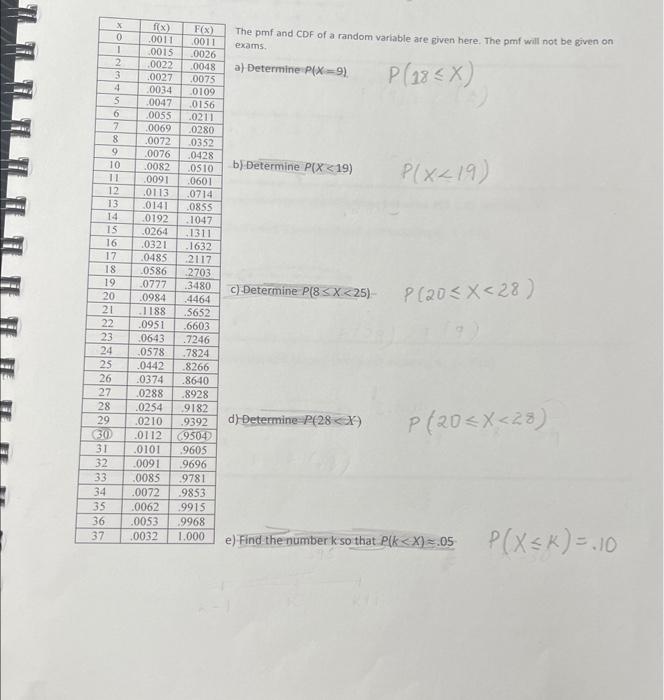 x f(x) F(x)
The pmf and CDF of a random variable are given here. The pmf will not be given on
exams.
0 .0011 .0011
1 .0015 .0026
2 .0022 .0048
a) Determine P(X=9) P(18 ≤ X)
3 .0027 .0075
4 .0034 .0109
5 .0047 .0156
6 .0055 .0211
7 .0069 .0280
8 .0072 .0352
9 .0076 .0428
10 .0082 .0510
b) Determine P(X < 19) P(X<19)
11 .0091 .0601
12 .0113 .0714
13 .0141 .0855
14 .0192 .1047
15 .0264 .1311
16 .0321 .1632
17 .0485 .2117
18 .0586 .2703
19 .0777 .3480
c) Determine P(8 ≤ X < 25) P(20 ≤ X < 28)
20 .0984 .4464
21 .1188 .5652
22 .0951 .6603
23 .0643 .7246
24 .0578 .7824
25 .0442 .8266
26 .0374 .8640
27 .0288 .8928
28 .0254 .9182
29 .0210 .9392
d) Determine P(28 < X) P(20 ≤ X < 28)
30 .0112 .9504
31 .0101 .9605
32 .0091 .9696
33 .0085 .9781
34 .0072 .9853
35 .0062 .9915
36 .0053 .9968
37 .0032 1.000
e) Find the number k so that P(k < X) ≈ .05 P(X ≤ K) = .10